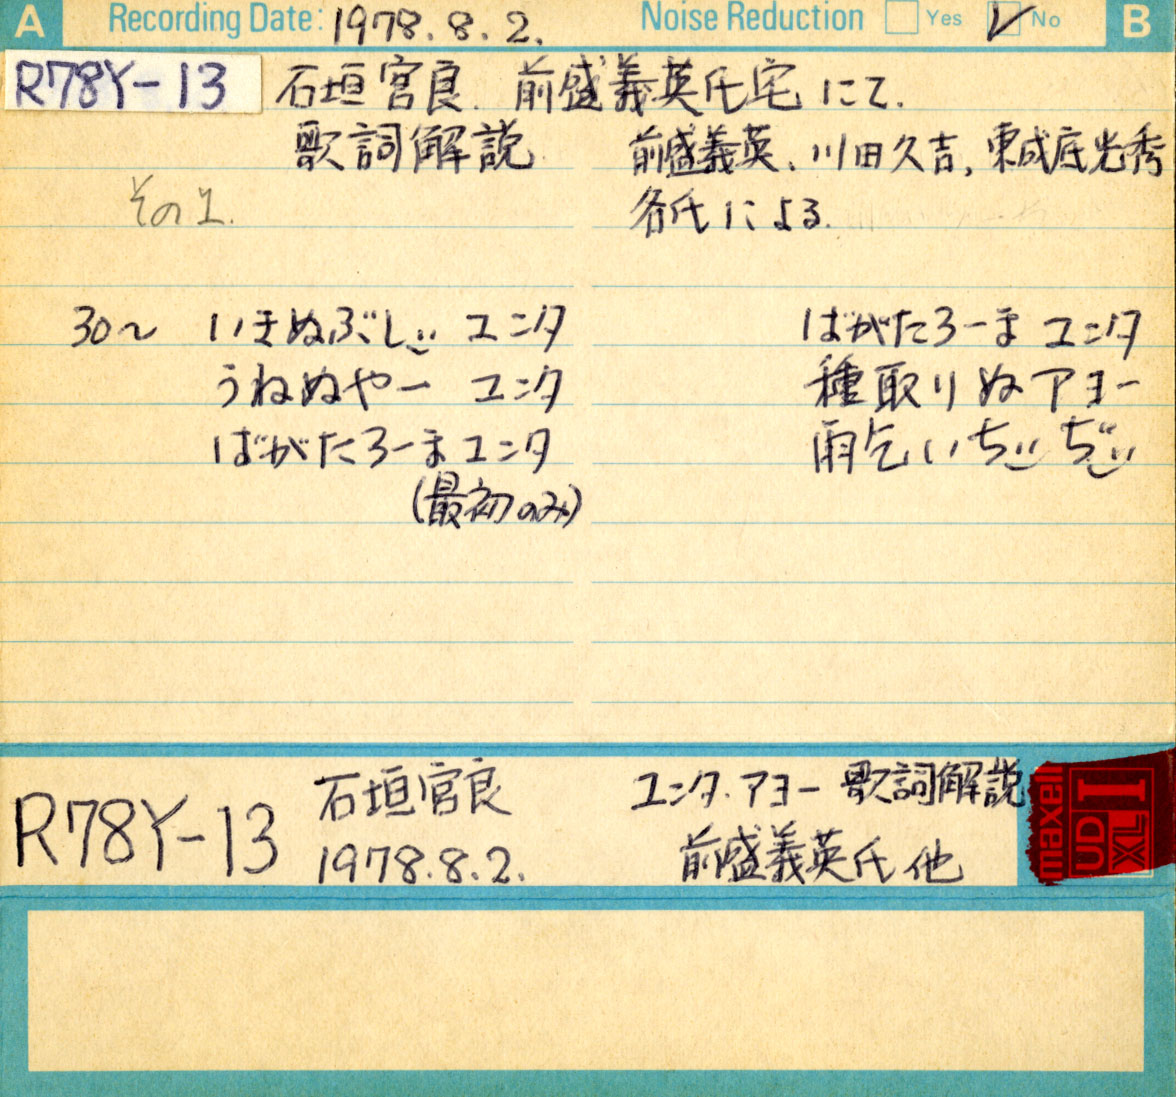 A Recording Date: 1978.8.2. Noise Reduction Yes No B
R78Y-13 石垣宮良. 前盛義英氏宅にて.
歌詞解説 前盛義英、川田久吉,東成底光秀
その1. 各氏による.
30～ いきぬぶしぃ ユンタ
うねぬやー ユンタ
ばがたろーま ユンタ
(最初のみ)
ばがたろーま ユンタ
種取りぬアヨー
雨乞いちぃぢぃ
R78Y-13 石垣宮良 ユンタ.アヨー 歌詞解説
1978.8.2. 前盛義英氏 他
maxell UD XL I